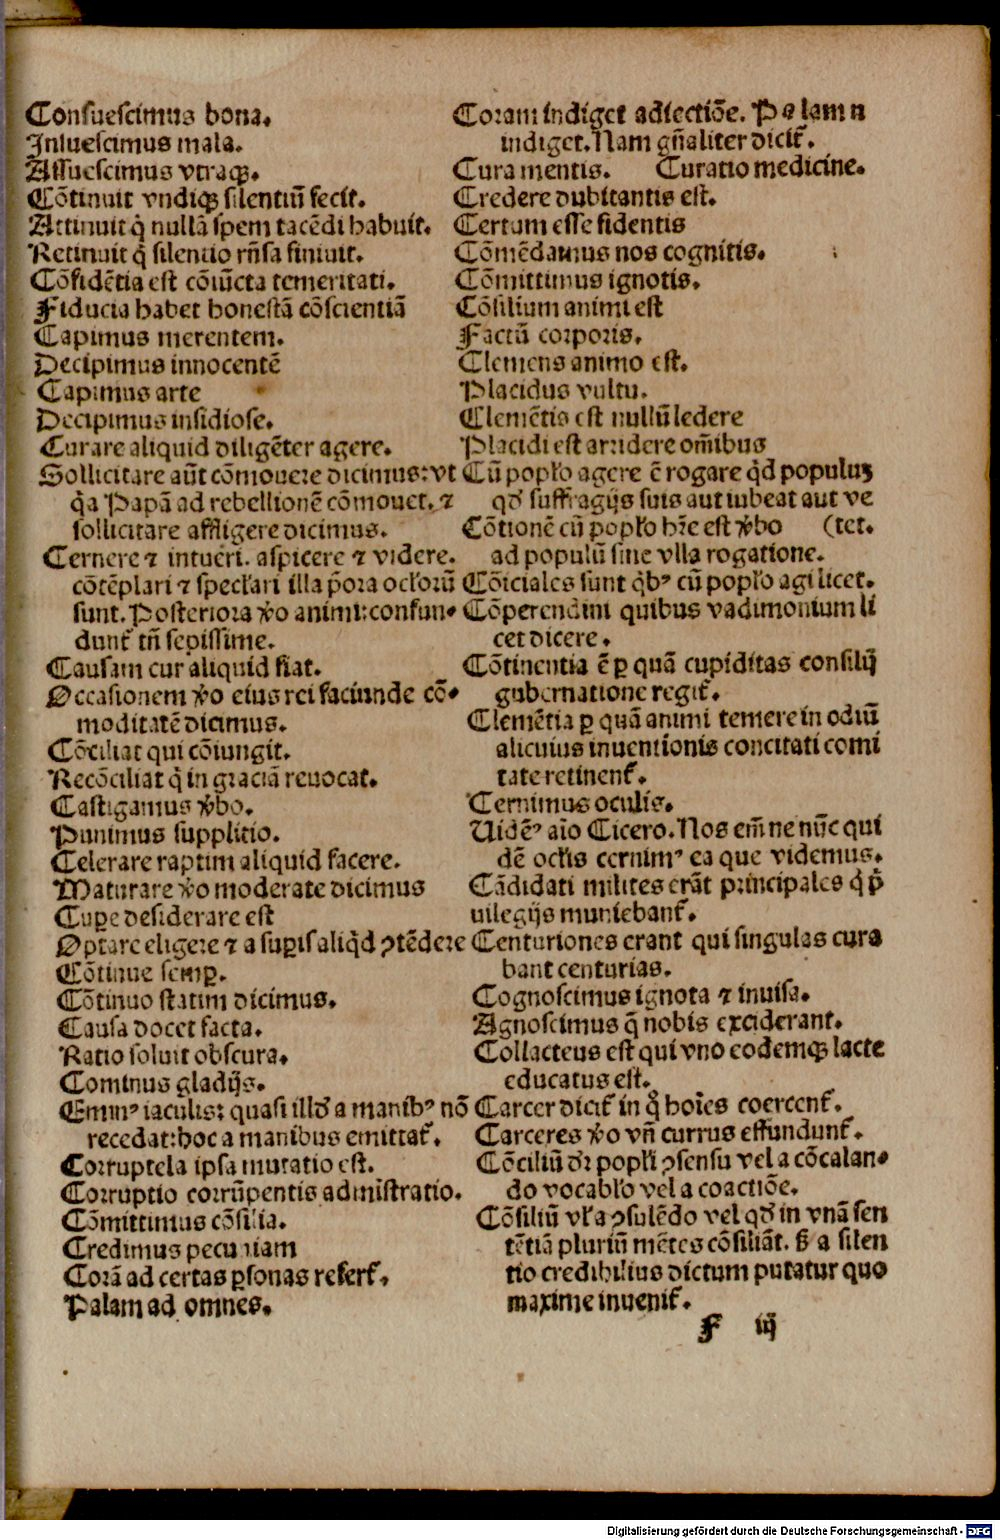 Consuescimus bona.
Insuescimus mala.
Assuescimus vtraqꝫ.
Cōtinuit vndiqꝫ silentiū fecit.
Attinuit q̇ nullā spem tacēdi habuit.
Retinuit q̇ silentio rn̄sa finiuit.
Cōfidētia est cōiūcta temeritati.
Fiducia habet honestā cōscientiā
Capimus merentem.
Decipimus innocentē
Capimus arte
Decipimus insidiose.
Curare aliquid diligēter agere.
Sollicitare aūt cōmouere dicimus: vt
q̇a Papā ad rebellionē cōmouet. ⁊
sollicitare affligere dicimus.
Cernere ⁊ intueri. aspicere ⁊ videre.
cōtēplari ⁊ spectari illa ꝑ̄ora ocl'orū
sunt. Posteriora v̓o animi: confun-
dunt᷑ tn̄ sepissime.
Causam cur aliquid fiat.
Occasionem v̓o eius rei faciunde cō-
moditatē dicimus.
Cōciliat qui cōiungit.
Recōciliat q̇ in graciā reuocat.
Castigamus v̓bo.
Punimus supplitio.
Celerare raptim aliquid facere.
Maturare v̓o moderate dicimus
Cupe desiderare est
Optare eligere ⁊ a suꝑis aliq̇d ꝯtēdere
Cōtinue semꝑ.
Cōtinuo statim dicimus.
Causa docet facta.
Ratio soluit obscura.
Cominus gladijs.
Eminꝰ iaculis: quasi illd̓ a manibꝰ nō
recedat: hoc a manibus emittat᷑.
Corruptela ipsa mutatio est.
Corruptio corrūpentis admīstratio.
Cōmittimus cōsilia.
Credimus pecuniam
Corā ad certas ꝑsonas refert᷑.
Palam ad omnes.
Coram indiget adiectiōe. Palam n
indiget. Nam gn̄aliter dicit᷑.
Cura mentis. Curatio medicine.
Credere dubitantis est.
Certum esse fidentis
Cōmēdamus nos cognitis.
Cōmittimus ignotis.
Cōsilium animi est
Factū corporis.
Clemens animo est.
Placidus vultu.
Clemētis est nullū ledere
Placidi est arridere om̄ibus
Cū popl'o agere ē rogare q̇d populuꝫ
qd̓ suffragijs suis aut iubeat aut ve
Cōtionē cū popl'o hr̄e est v̓bo (tet.
ad populū sine vlla rogatione.
Cōiciales sunt q̇bꝰ cū popl'o agi licet.
Cōperendini quibus vadimonium li
cet dicere.
Cōtinentia ē ꝑ quā cupiditas consilij
gubernatione regit᷑.
Clemētia ꝑ quā animi temere in odiū
alicuius inuentionis concitati comi
tate retinent᷑.
Cernimus oculis.
Uidēꝰ aīo Cicero. Nos em̄ ne nūc qui
dē ocl'is cernimꝰ ea que videmus.
Cādidati milites erāt principales q̇ p̄
uilegijs muniebant᷑.
Centuriones erant qui singulas cura
bant centurias.
Cognoscimus ignota ⁊ inuisa.
Agnoscimus q̄ nobis exciderant.
Collacteus est qui vno eodemqꝫ lacte
educatus est.
Carcer dicit᷑ in q̊ hoīes coercent᷑.
Carceres v̓o vn̄ currus effundunt᷑.
Cōciliū dr̄ popl'i ꝯsensu vel a cōcalan-
do vocabl'o vel a coactiōe.
Cōsiliū vl'a ꝯsulēdo vel qd̓ in vnā sen
tētiā pluriū mētes cōsiliāt. sꝫ a silen
tio credibilius dictum putatur quo
maxime inuenit᷑.
F iij
Digitalisierung gefördert durch die Deutsche Forschungsgemeinschaft - DFG